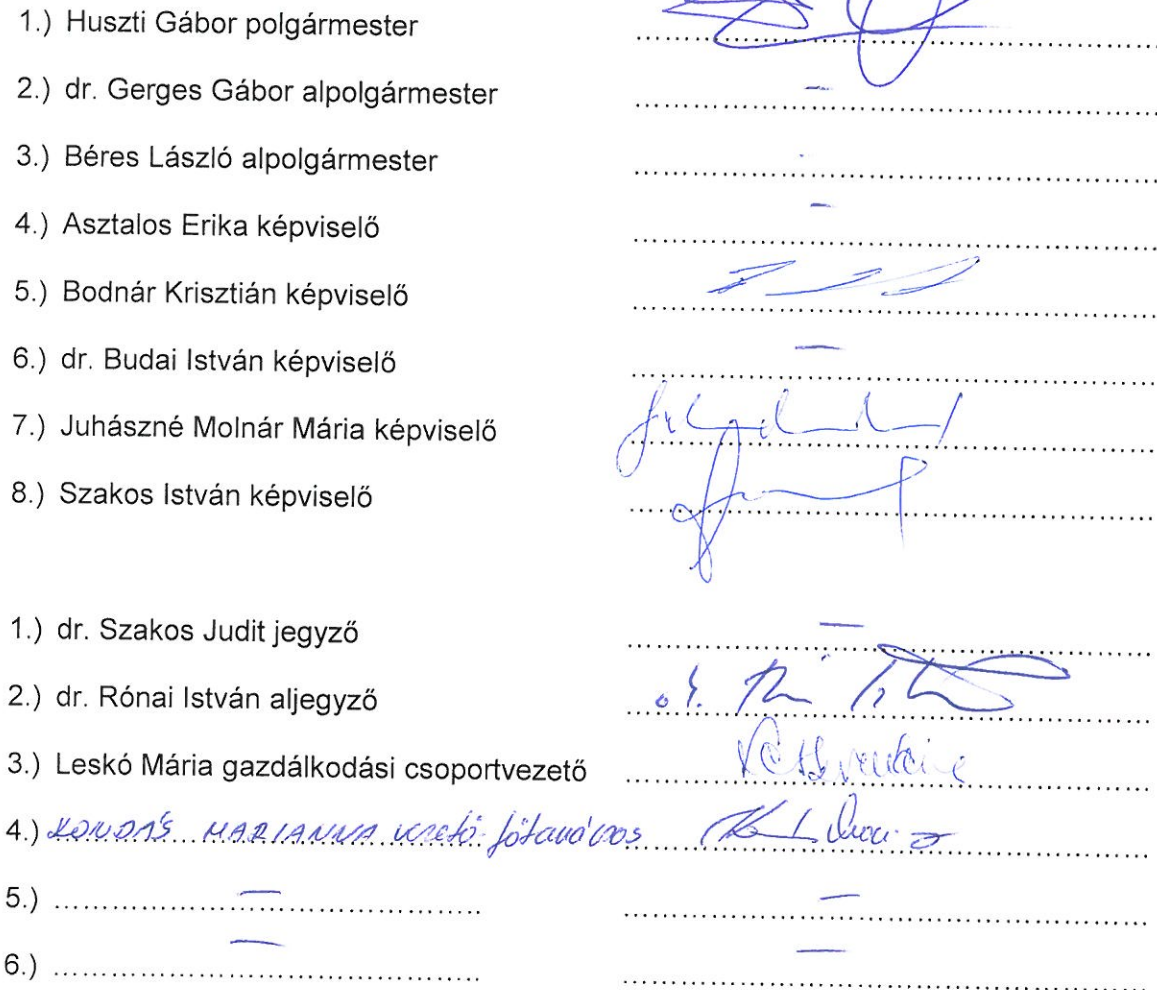 1.) Huszti Gábor polgármester ..........
2.) dr. Gerges Gábor alpolgármester ..........
3.) Béres László alpolgármester ..........
4.) Asztalos Erika képviselő ..........
5.) Bodnár Krisztián képviselő ..........
6.) dr. Budai István képviselő ..........
7.) Juhászné Molnár Mária képviselő ..........
8.) Szakos István képviselő ..........
1.) dr. Szakos Judit jegyző ..........
2.) dr. Rónai István aljegyző ..........
3.) Leskó Mária gazdálkodási csoportvezető ..........
4.) KONDÁS MARIANNA vezető-főtanácsos
5.) .......... — ..........
6.) .......... — ..........